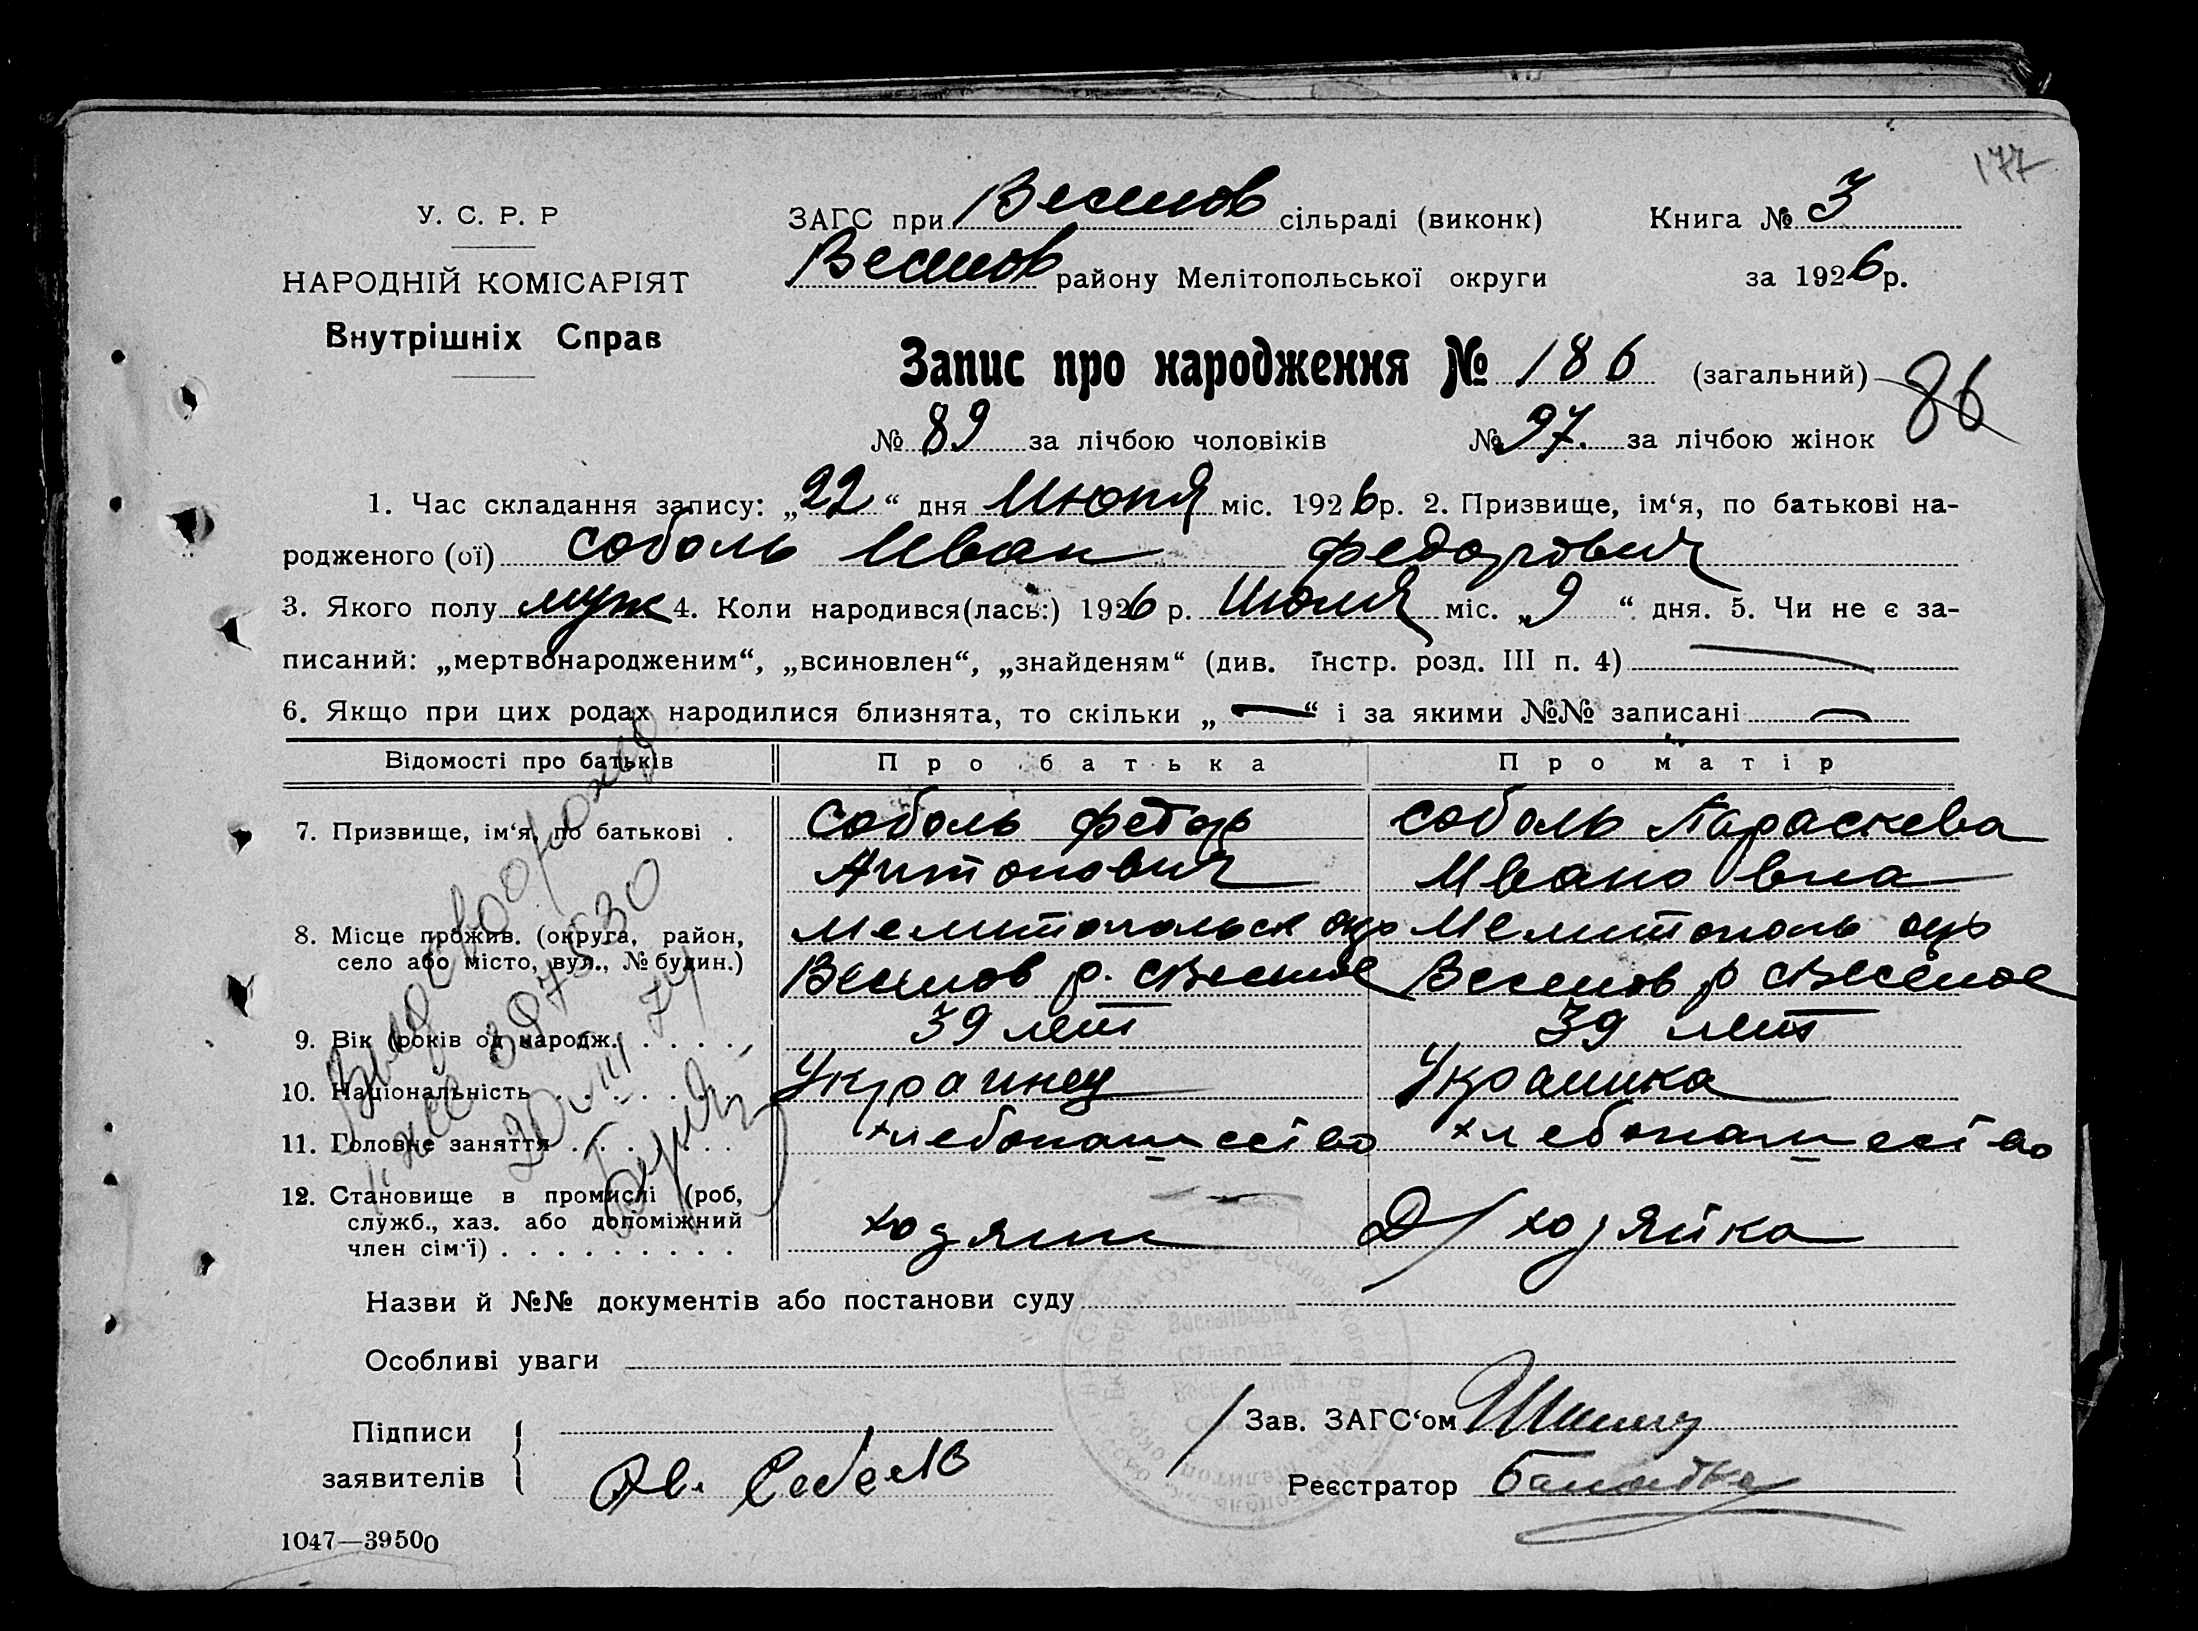 177
У. С. Р. Р
ЗАГС при Веселов сільраді (виконк) Книга № 3
НАРОДНІЙ КОМІСАРІЯТ
Веселов району Мелітопольської округи за 1926 р.
Внутрішніх Справ
Запис про народження № 186 (загальний) 86
№ 89 за лічбою чоловіків № 97. за лічбою жінок
1. Час складання запису: „22“ дня Июля міс. 1926 р. 2. Призвище, ім‘я, по батькові на-
родженого (ої) Соболь Иван Федорович
3. Якого полу муж 4. Коли народився(лась:) 1926 р. Июля міс. „9“ дня. 5. Чи не є за-
писаний: „мертвонародженим“, „всиновлен“, „знайденям“ (див. інстр. розд. III п. 4) —
6. Якщо при цих родах народилися близнята, то скільки „—“ і за якими №№ записані —
Відомості про батьків Про батька Про матір
7. Призвище, ім‘я, по батькові . Соболь Федор Соболь Параскева
Антонович Ивановна
8. Місце прожив. (округа, район, Мелитопольск окр Мелитополь окр
село або місто, вул., № будин.) Веселов р. с Веселое Веселов р с Веселое
9. Вік (років од народж. . . . . . 39 лет 39 лет
10. Національність . . . . . . . Украинец Украинка
11. Головне заняття . . . . . . . хлебопашество хлебопашество
12. Становище в промислі (роб,
служб., хаз. або допоміжний
член сім‘ї) . . . . . . . . . хозяин Д/хозяйка
Назви й №№ документів або постанови суду
Особливі уваги
Підписи
заявителів
Соболь
Зав. ЗАГС‘ом
Реєстратор
1047—39500